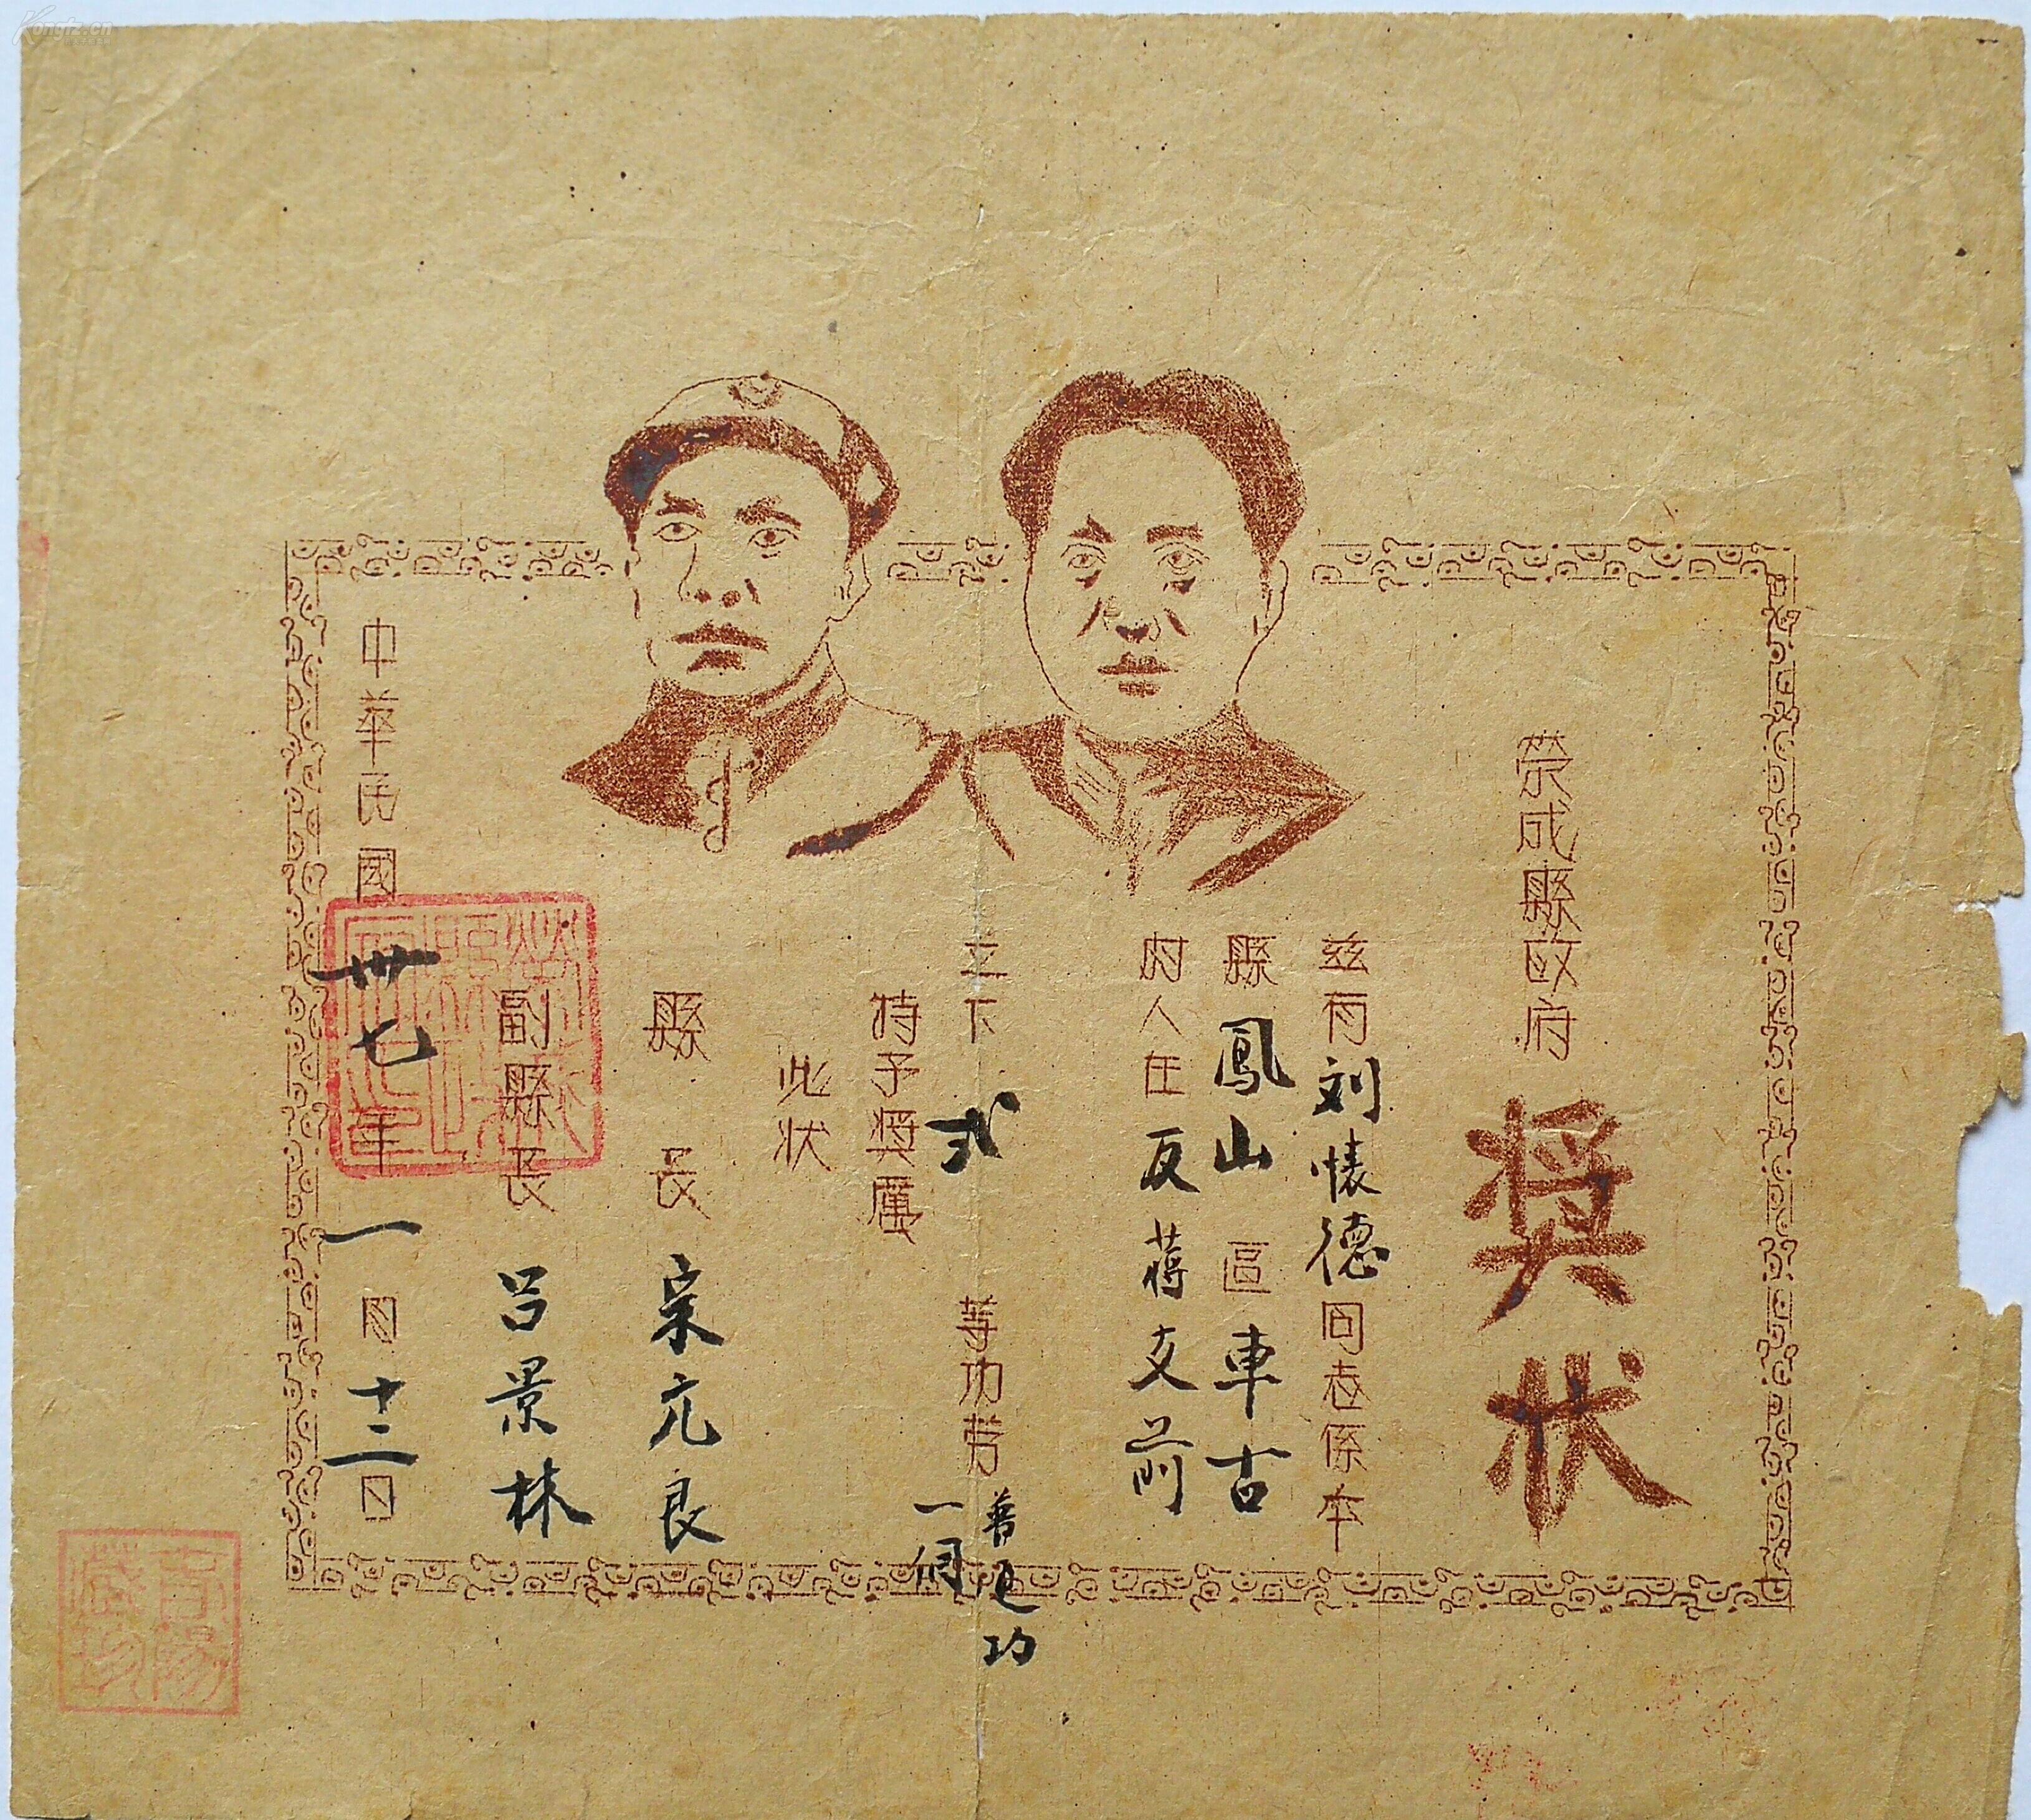 榮成縣政府
奬状
兹有刘懐德同志係本
縣鳳山區車古
村人在反蒋支前
立下弍等功劳
普通功
一個
特予奬厲
此状
縣長宗亢良
副縣長吕景林
中華民國卅七年一月十二日
Kongfz.cn